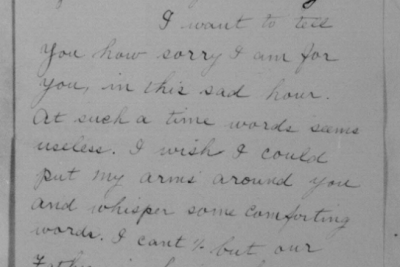 I want to tell
you how sorry I am for
you, in this sad hour.
At such a time words seems
useless. I wish I could
put my arms around you
and whisper some comforting
words. I cant but our